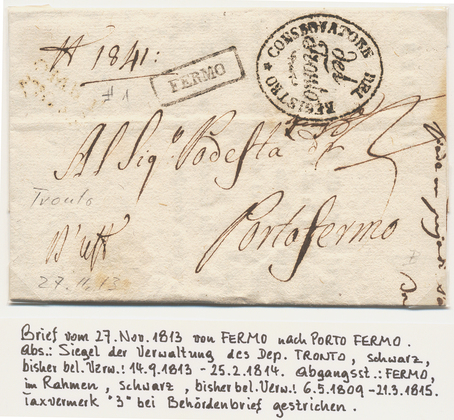 # 1841:
FERMO
CONSERVATORE DEL REGISTRO
del
Tronto
Al Sig.r Podestà di
Tronto
Porto Fermo
27.11.13
Brief vom 27. Nov. 1813 von FERMO nach PORTO FERMO.
Abs.: Siegel der Verwaltung des Dep. TRONTO, schwarz,
bisher bel. Verw.: 14.9.1813 - 25.2.1814. Abgangsst.: FERMO,
im Rahmen, schwarz, bisher bel. Verw.: 6.5.1809 - 21.3.1815.
Taxvermerk "3" bei Behördenbrief gestrichen.